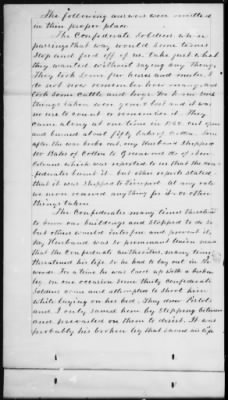 The following answers were omitted
in their proper place.
The Confederate Soldiers when
passing that way would come turns
stop and feed off of us. Take just what
they wanted without saying any thing.
They took some few horses and mules. I
do not now remember how many, and
took some Cattle and hogs. We knew
things taken were gone, lost and it was
no use to count or remember it. They
came along at one time in 1862, cut open
and burned about fifty bales of Cotton. Soon
after the war broke out, my Husband shipped
100 Bales of Cotton to of New
Orleans which was reported to us that the con-
federates burnt it. but other reports stated
that it was shipped to Liverpool. At any rate
we never received any thing for it or other
things taken.
The Confederates many times threatened
to burn our buildings and stopped to do so
but others would interfere and prevent it.
My Husband was so prominent Union man
that the Confederate authorities, many times
threatened his life. So he had to lay out in the
woods. For a time he was laced up with a broken
leg on one occasion some thirty Confederate
Soldiers came and attempted to shoot him
while laying on his bed. They drew Pistols
and I only saved him by stepping between
and prevailed on them to desist. It was
probably his broken leg that saved his life